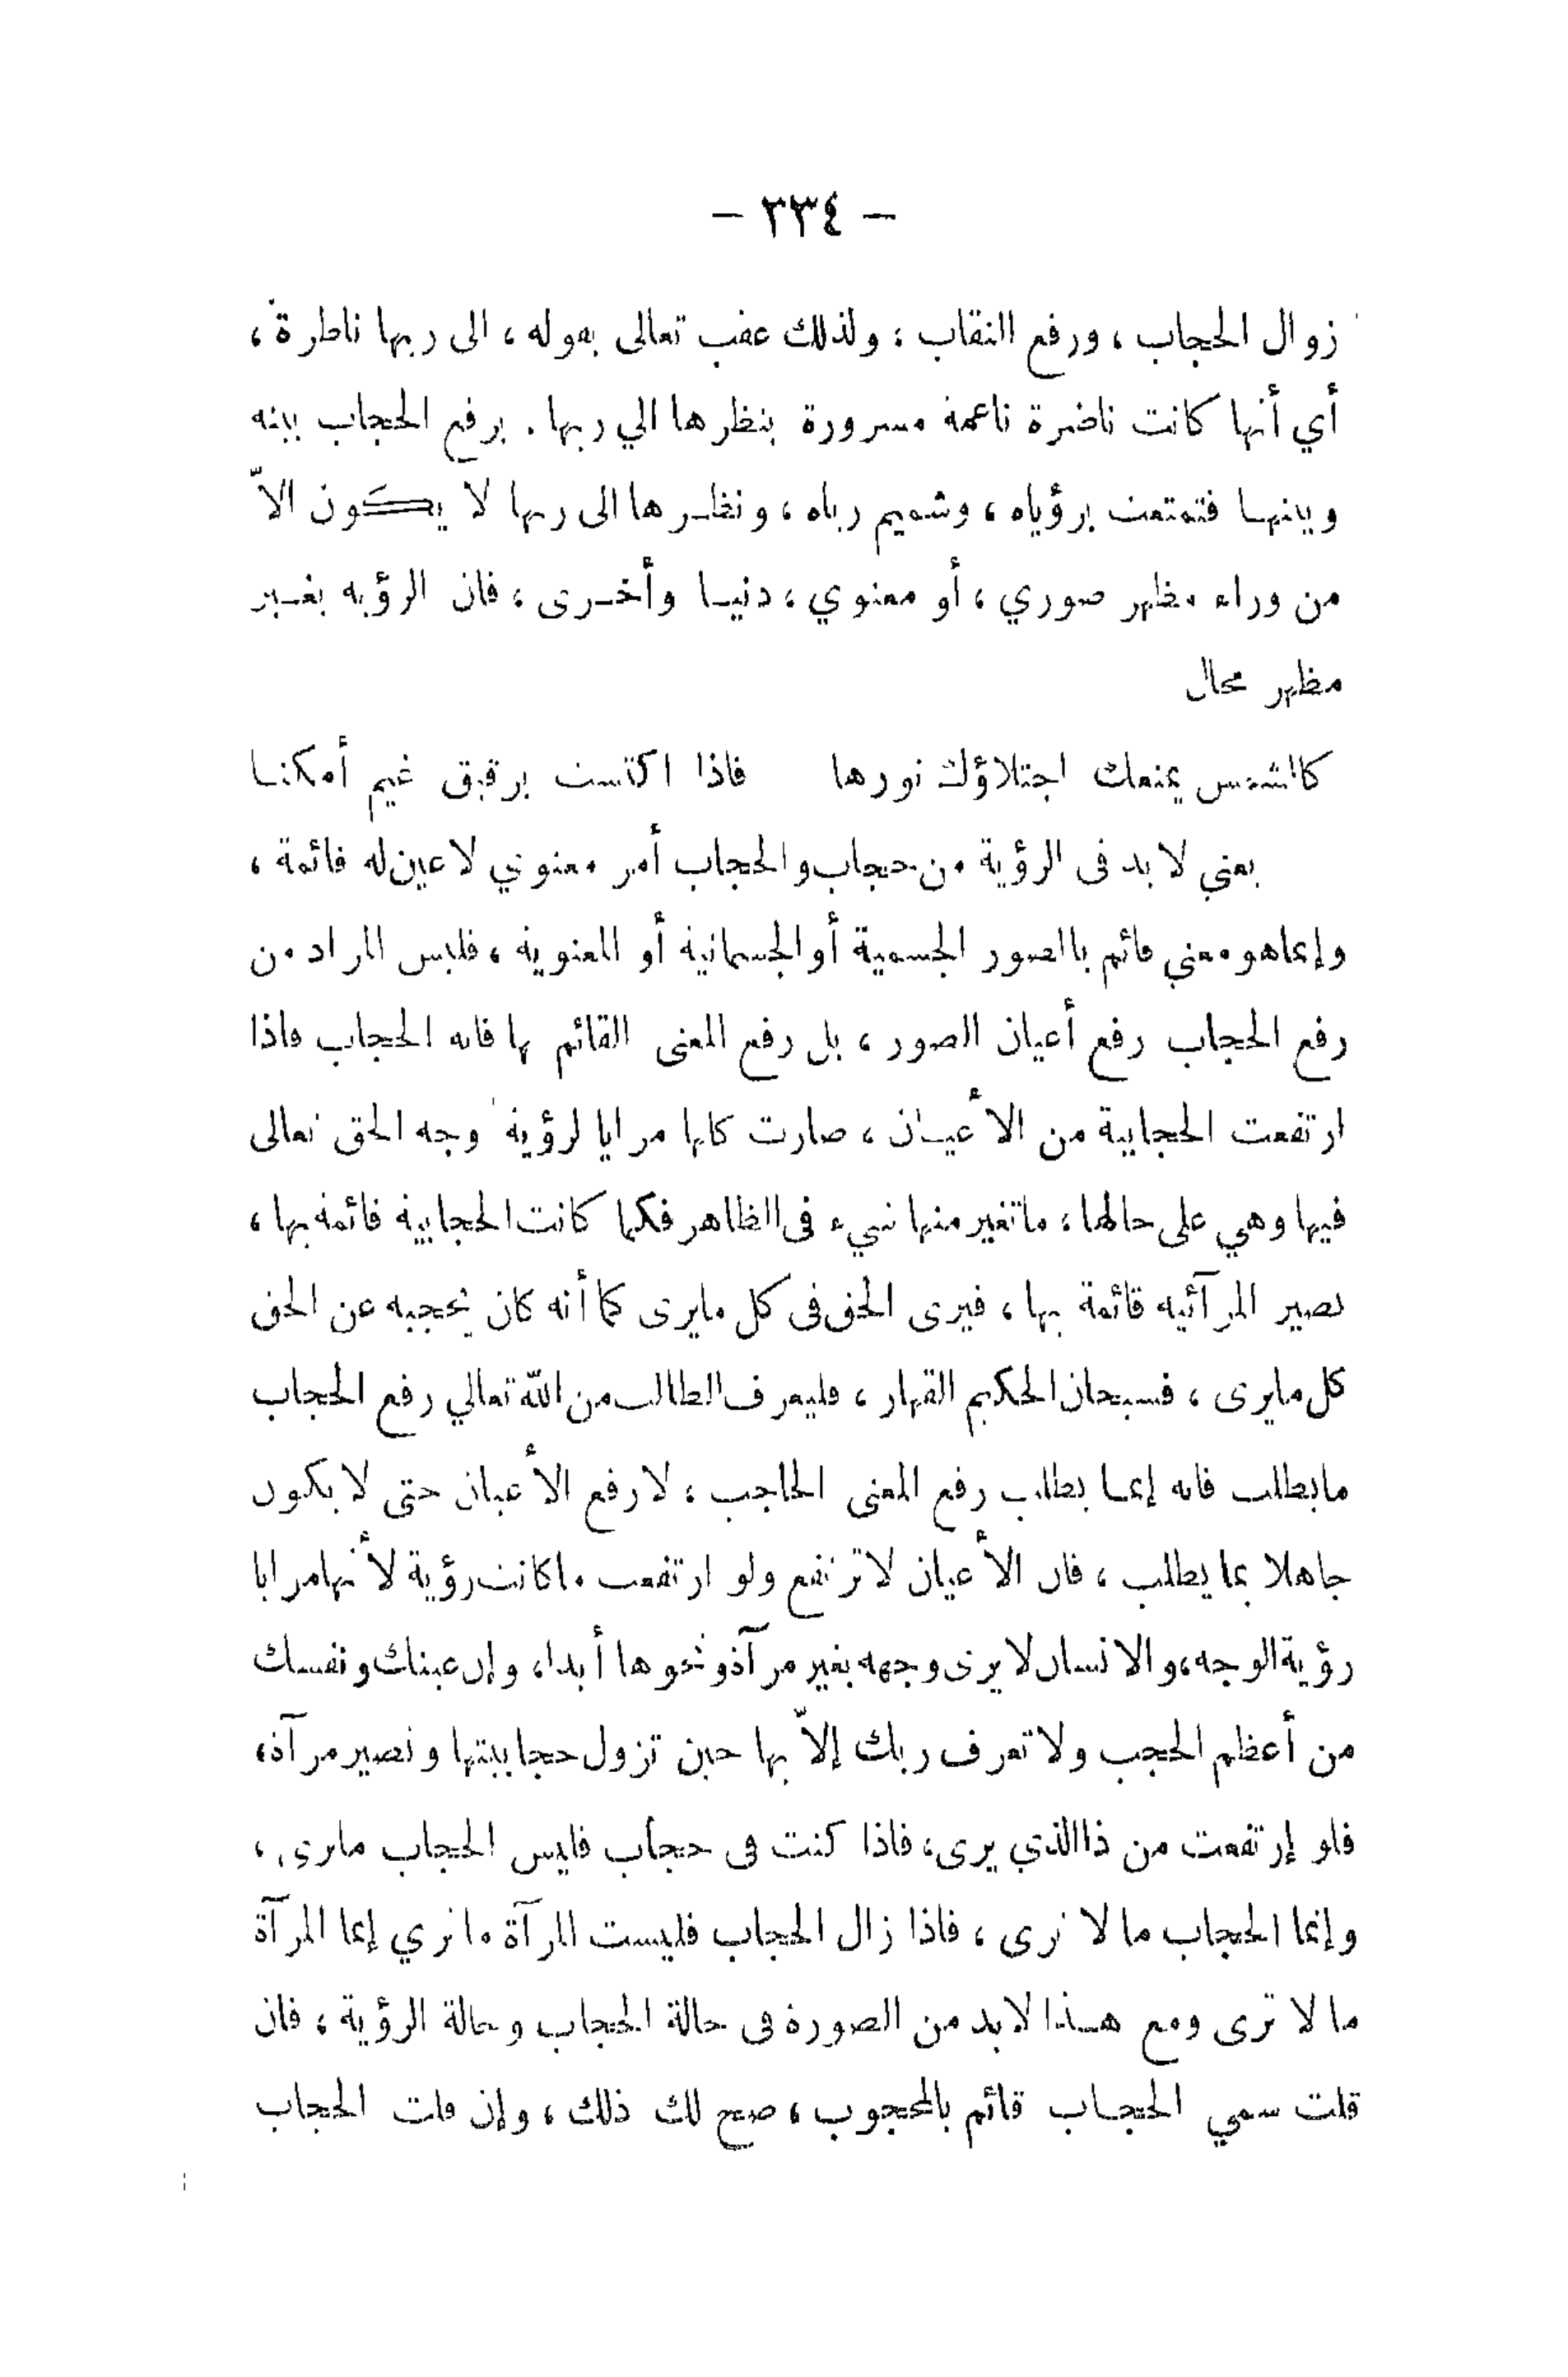 — ٢٣٤ —
زوال الحجاب ، ورفع النقاب ، ولذلك عقب تعالى بقوله ، الى ربها ناظرة ،
أي أنها كانت ناضرة ناعمة مسرورة بنظرها الي ربها . برفع الحجاب بينه
وبينهـا فتمتعت برؤياه ، وشميم رياه ، ونظـرها الى ربها لا يكون الاّ
من وراء مظهر صوري ، أو معنوي ، دنيـا وأخـرى ، فان الرؤية بغـير
مظهر محال
كالشمس يمنعك اجتلاؤك نورها فاذا اكتست برقيق غيم أمكنـا
يعني لا بد فى الرؤية من حجاب والحجاب أمر معنوي لا عين له قائمة ،
وإنما هو معني قائم بالصور الجسمية أو الجسمانية أو المعنوية ، فليس المراد من
رفع الحجاب رفع أعيان الصور ، بل رفع المعنى القائم بها فانه الحجاب فاذا
ارتفعت الحجابية من الأعيـان ، صارت كلها مرايا لرؤية وجه الحق تعالى
فيها وهي على حالها ، ما تغير منها شيء فى الظاهر فكما كانت الحجابية قائمة بها ،
تصير المرآئية قائمة بها ، فيرى الحق فى كل مايرى كما أنه كان يحجبه عن الحق
كل مايرى ، فسبحان الحكيم القهار ، فليعرف الطالب من الله تعالي رفع الحجاب
مايطلب فانه إنمـا يطلب رفع المعنى الحاجب ، لا رفع الأعيان حتى لا يكون
جاهلا بما يطلب ، فان الأعيان لا ترتفع ولو ارتفعت ما كانت رؤية لأنها مرايا
رؤية الوجه ، والانسان لا يرى وجهه بغير مرآة ونحوها أبدا ، وإن عينك ونفسك
من أعظم الحجب ولا تعرف ربك إلاّ بها حين تزول حجابيتها وتصير مرآة ،
فلو إرتفعت من ذا الذي يرى ، فاذا كنت فى حجاب فليس الحجاب ماترى ،
وإنما الحجاب ما لا ترى ، فاذا زال الحجاب فليست المرآة ما تري إنما المرآة
ما لا ترى ومع هـذا لا بد من الصورة فى حالة الحجاب وحالة الرؤية ، فان
قلت سمي الحجـاب قائم بالمحجوب ، صح لك ذلك ، وإن قلت الحجاب